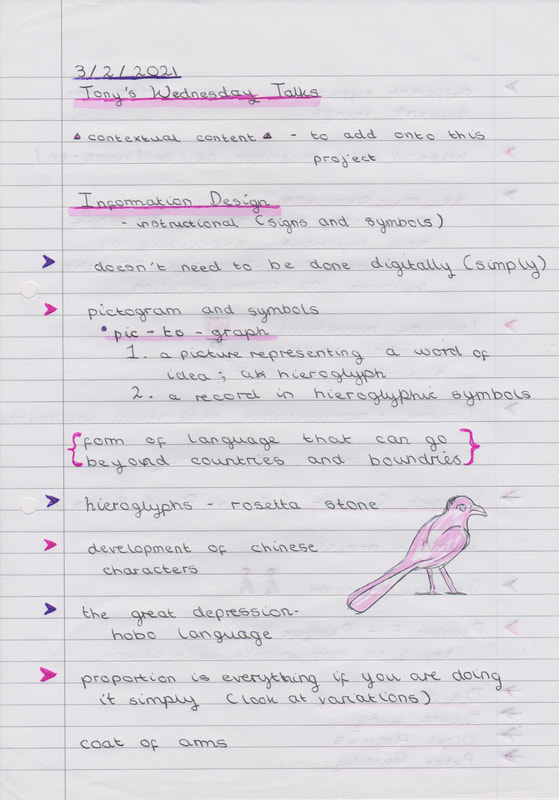 3/2/2021
Tony's Wednesday Talks
contextual content - to add onto this
project
Information Design
- instructional (signs and symbols)
doesn't need to be done digitally (simply)
pictogram and symbols
• pic - to - graph
1. a picture representing a word of
idea; uk hieroglyph
2. a record in hieroglyphic symbols
{form of language that can go
beyond countries and boundries}
hieroglyphs - rosetta stone
development of chinese
characters
the great depression-
hobo language
proportion is everything if you are doing
it simply (look at variations)
coat of arms